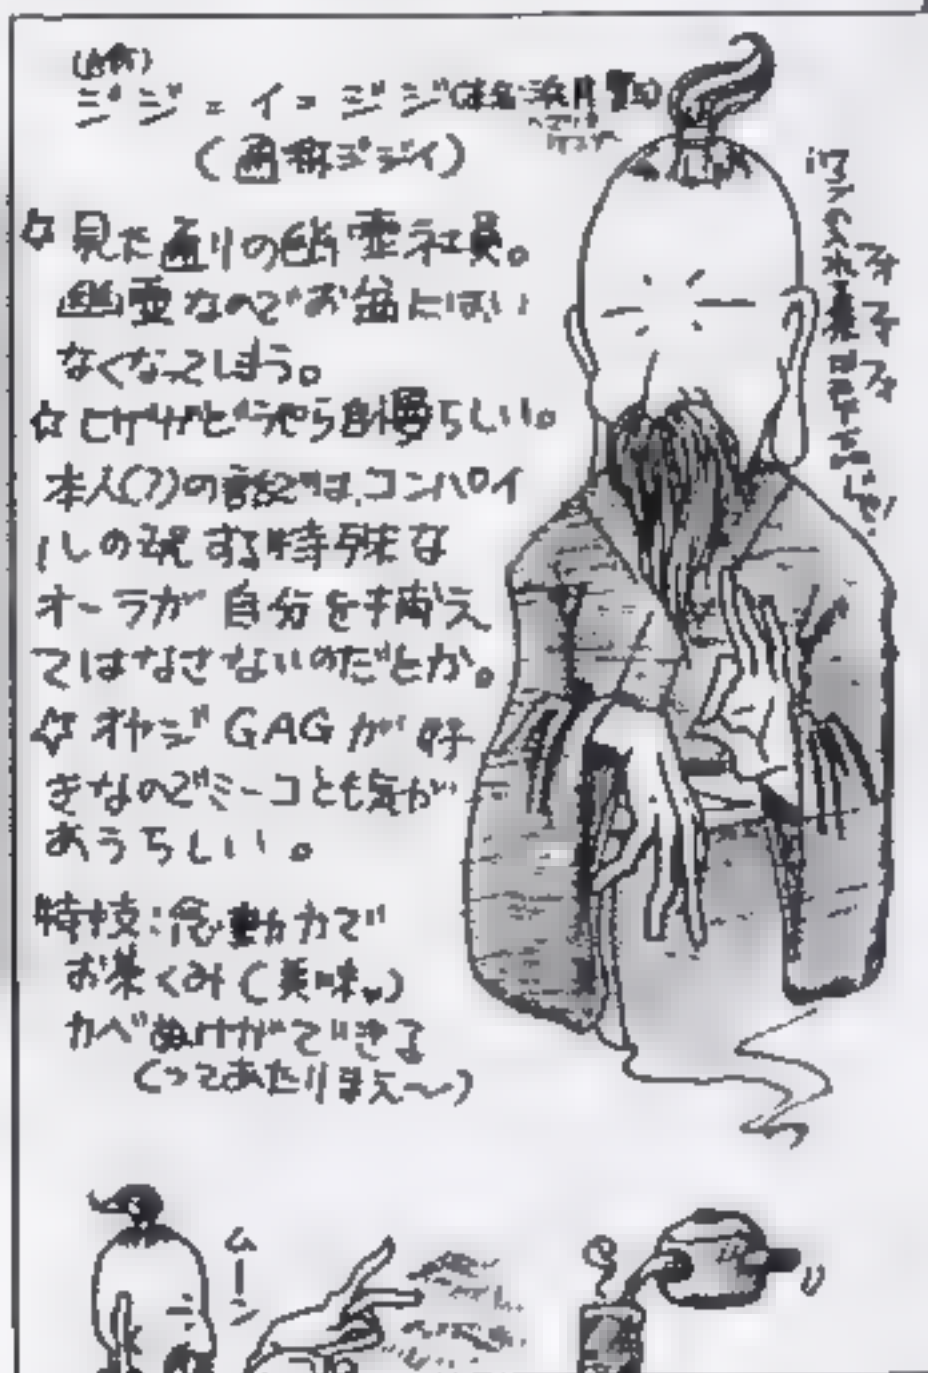 ジジ=イ=ジジ
(通称ジジイ)
☆見た通りの幽霊社員。
幽霊なのでお盆にはい
なくなってしまう。
☆ヒゲがどうやら自慢らしい。
本人(?)の説では、コンパイ
ルの発する特殊な
オーラが自分を捕え
てはなさないのだとか。
☆オヤジGAGが好
きなのでミーコとも気が
あうらしい。
特技:念動力で
お茶くみ(美味♥)
カベぬけができる
(ってあたりまえ〜)
フォフォフォ
ムーン